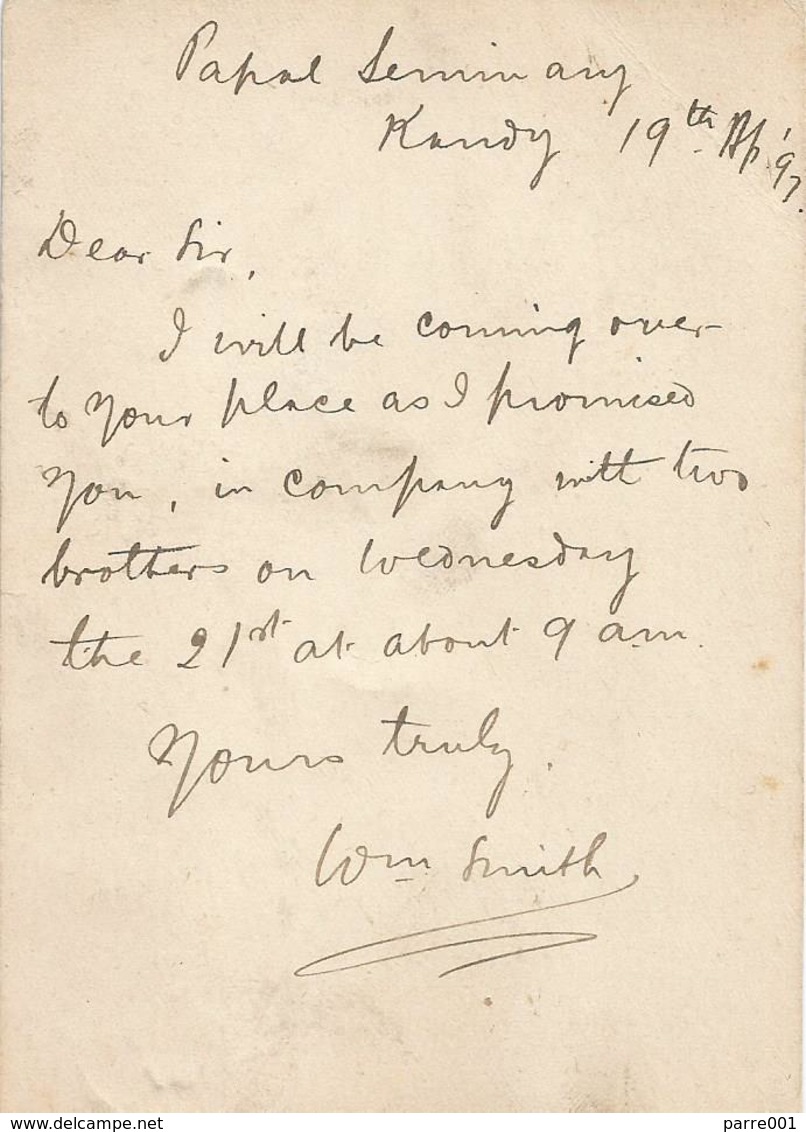 Papal Seminary
Kandy 19th Ap '97.
Dear Sir,
I will be coming over
to your place as I promised
you, in company with two
brothers on Wednesday
the 21st at about 9 am.
Yours truly.
Wm Smith
www.delcampe.net
parre001